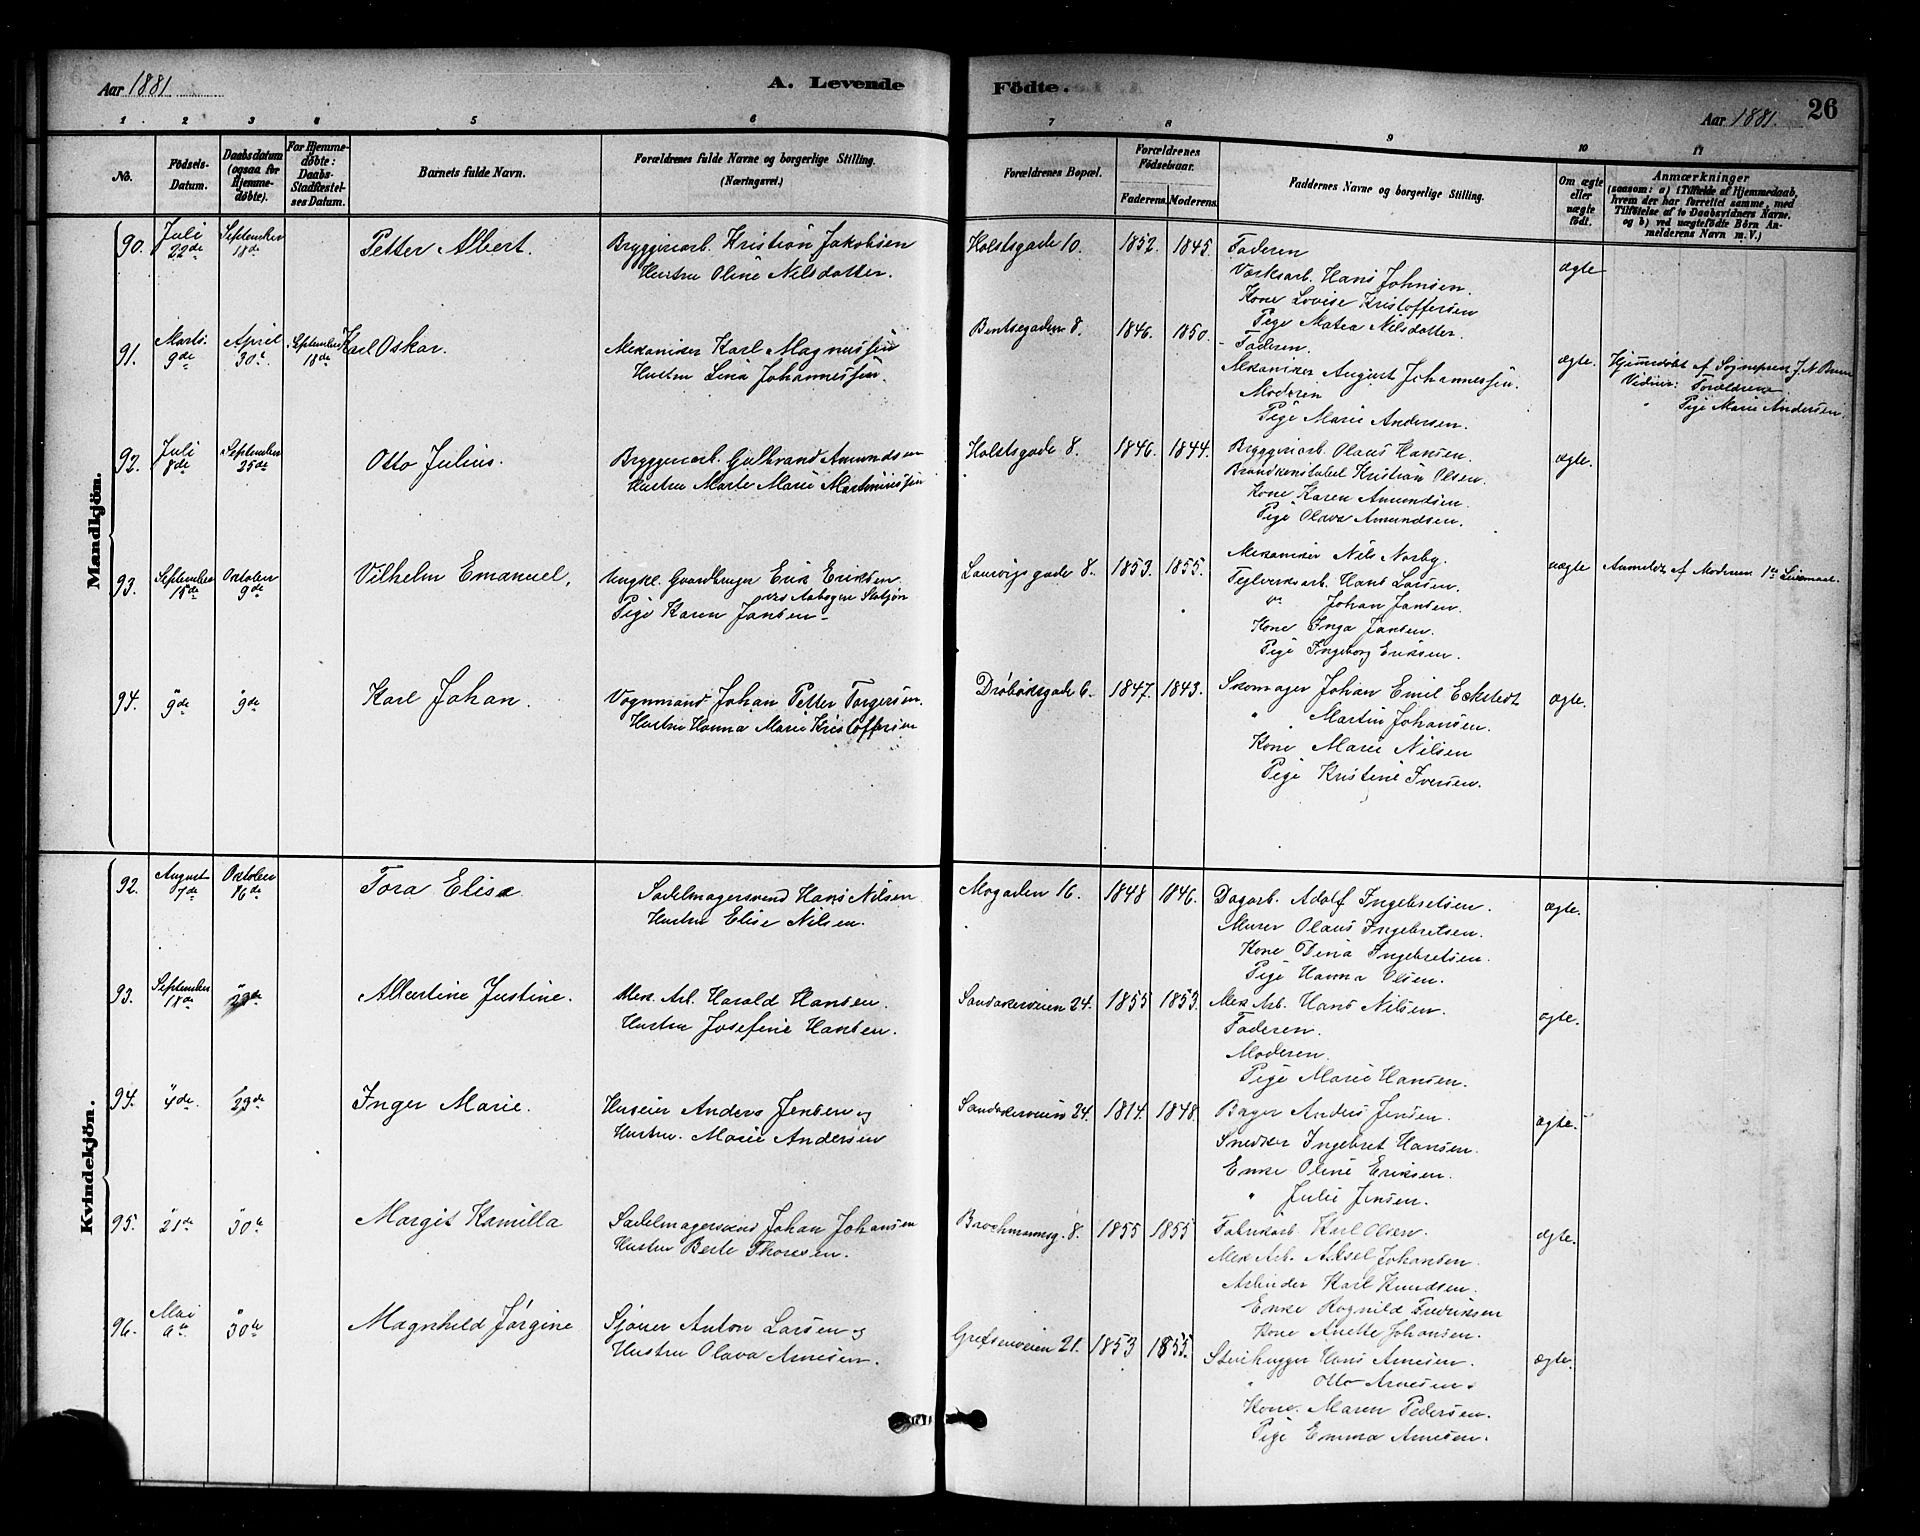 Aar 1881
A. Levende
Födte.
Aar 1881.
26
1 2 3 4 5 6 7 8 9 10 11
No.
Födsels-Datum.
Daabsdatum (ogsaa for Hjemmedöbte).
For Hjemmedöbte: Daabs-Stadfæstelses Datum.
Barnets fulde Navn.
Forældrenes fulde Navne og borgerlige Stilling.
(Næringsvei.)
Forældrenes Bopæl.
Forældrenes Födselsaar.
Faderens. Moderens.
Faddernes Navne og borgerlige Stilling.
Om ægte eller uægte födt.
Anmærkninger
(saasom: a) i Tilfælde af Hjemmedaab,
hvem der har forrettet samme, med
Tilföielse af to Daabsvidners Navne,
og b) ved uægtefödte Börn An-
melderens Navn m. V.)
Mandkjön.
90. Juli 22de September 18de Petter Albert. Bryggeriarb. Kristian Jakobsen Holstsgade 10. 1852. 1845. Faderen ægte
Hustru Oline Nilsdatter. Værksarb. Hans Johnsen.
Kone Lovise Kristoffersen
Pige Matea Nilsdatter.
91. Marts 9de April 30te September 18de Karl Oskar. Mekaniker Karl Magnussen Bentsegaden 8. 1846. 1850. Faderen. ægte. Hjemmedøbt af Sognepræst J. N. Brun
Hustru Lina Johannessen. Mekaniker August Johannessen. Vidner: Forældrene
Moderen Pige Marie Andersen.
Pige Marie Andersen.
92. Juli 8de September 25de Otto Julius. Bryggeriarb. Gulbrand Amundsen Holstsgade 8. 1846. 1844. Bryggeriarb. Olaus Hansen. ægte.
Hustru Marte Marie Martiniussen Brandkonstabel Kristian Olsen.
Kone Karen Amundsen.
Pige Olava Amundsen.
93. September 15de Oktober 9de Vilhelm Emanuel. Ungkl. Gaardbruger Erik Eriksen Laurvigsgade 8. 1853. 1855. Mekaniker Nils Norby. uægte Anmeldt af Moderen 1ste Leiermaal.
Pige Karen Jansen Teglverksarb. Hans Larsen.
Johan Jansen.
Kone Inga Jansen.
Pige Ingeborg Eriksen.
94. " 9de " 9de Karl Johan. Vognmand Johan Petter Torgersen. Drøbaksgade 6. 1847. 1843. Skomager Johan Emil Eckstedt ægte.
Hustru Hanna Marie Kristoffersen " Martin Johansen.
Kone Marie Nilsen
Pige Kristine Iversen.
Kvindekjön.
92. August 7de Oktober 16de Tora Elise Sadelmagersvend Hans Nilsen Mogaden 16. 1848 1846. Dagarb. Adolf Ingebretsen. ægte.
Hustru Elise Nilsen. Murer Olaus Ingebretsen.
Kone Dina Ingebretsen.
Pige Hanna Olsen.
93. September 18de " 23de Albertine Justine. Mek. Arb. Harald Hansen. Sandakerveien 24. 1855 1853. Mek Arb. Hans Nilsen. ægte.
Hustru Josefine Hansen. Faderen.
Moderen.
Pige Marie Hansen.
94. " 4de. " 23de Inger Marie. Huseier Anders Jensen og Sandakerveien 24. 1814. 1848. Bager Anders Jensen. ægte.
Hustru. Marie Andersen Snedker Ingebret Hansen.
Enke Oline Eriksen.
" Julie Jensen.
95. " 21de " 30te Margit Kamilla Sadelmagersvend Johan Johansen Brochmannsg. 8. 1855 1855 Fabrikarb. Karl Olsen. ægte.
Hustru Berte Thoresen. Mek Arb. Aksel Johansen.
Arbeider Karl Knudsen.
Enke Ragnild Fredriksen
Kone Anette Johansen.
96. Mai 9de " 30te Magnhild Jørgine Sjøuer Anton Larsen og Grefsenveien 21. 1853 1855. Stenhugger Hans Arnesen. ægte.
Hustru Olava Arnesen. " Otto Arnesen.
Kone. Maren Pedersen.
Pige Emma Arnesen.